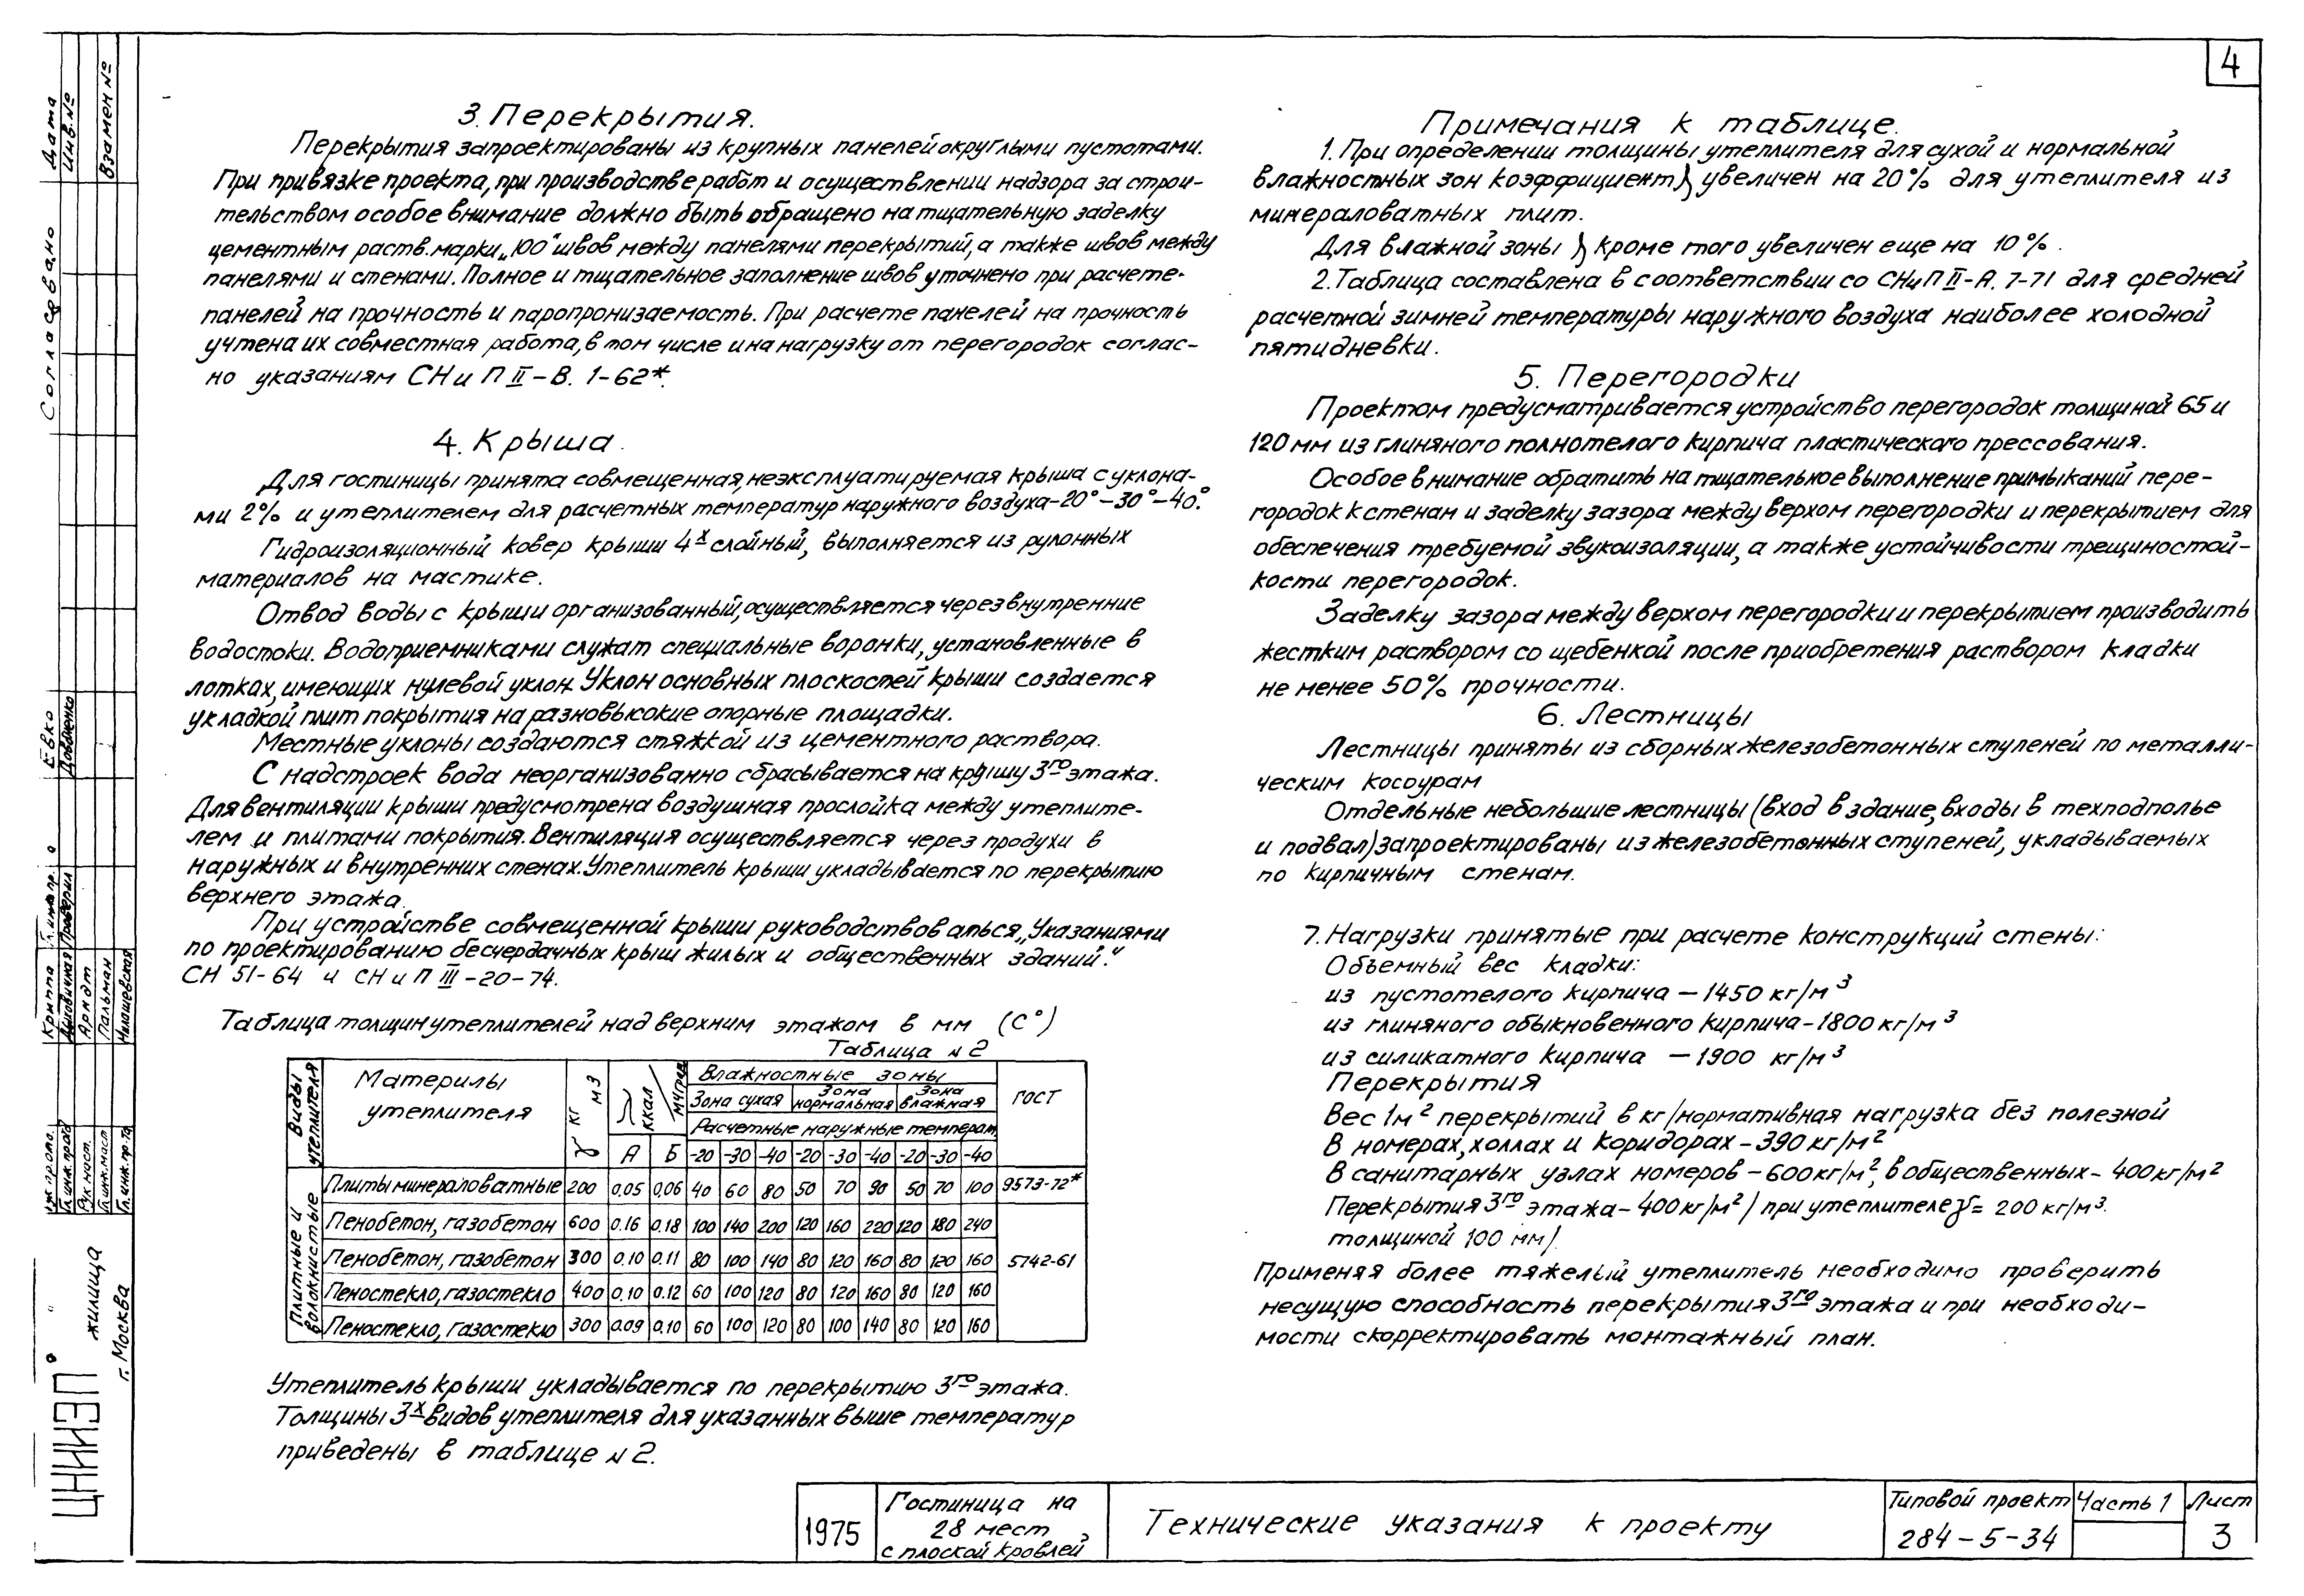 4
3. Перекрытия.
Перекрытия запроектированы из крупных панелей округлыми пустотами.
При привязке проекта, при производстве работ и осуществлении надзора за строи-
тельством особое внимание должно быть обращено на тщательную заделку
цементным раств. марки „100“ швов между панелями перекрытий, а также швов между
панелями и стенами. Полное и тщательное заполнение швов уточнено при расчете-
панелей на прочность и паропронизаемость. При расчете панелей на прочность
учтена их совместная работа, в том числе и на нагрузку от перегородок соглас-
но указаниям СНиП II-В. 1-62*.
4. Крыша.
Для гостиницы принята совмещенная, неэксплуатируемая крыша с уклона-
ми 2% и утеплителем для расчетных температур наружного воздуха -20° -30° -40°.
Гидроизоляционный ковер крыши 4х слойный, выполняется из рулонных
материалов на мастике.
Отвод воды с крыши организованный, осуществляется через внутренние
водостоки. Водоприемниками служат специальные воронки, установленные в
лотках, имеющих нулевой уклон. Уклон основных плоскостей крыши создается
укладкой плит покрытия на разновысокие опорные площадки.
Местные уклоны создаются стяжкой из цементного раствора.
С надстроек вода неорганизованно сбрасывается на крышу 3го этажа.
Для вентиляции крыши предусмотрена воздушная прослойка между утеплите-
лем и плитами покрытия. Вентиляция осуществляется через продухи в
наружных и внутренних стенах. Утеплитель крыши укладывается по перекрытию
верхнего этажа.
При устройстве совмещенной крыши руководствоваться „Указаниями
по проектированию бесчердачных крыш жилых и общественных зданий.“
СН 51-64 и СНиП III-20-74.
Таблица толщин утеплителей над верхним этажом в мм (С°)
Таблица N2
Виды утеплителя
Материлы утеплителя
γ кг м3
λ ккал/мчград
Влажностные зоны
ГОСТ
Зона сухая Зона нормальная Зона влажная
Расчетные наружные температ.
А Б -20 -30 -40 -20 -30 -40 -20 -30 -40
Плитные и волокнистые
Плиты минераловатные 200 0,05 0,06 40 60 80 50 70 90 50 70 100 9573-72*
Пенобетон, газобетон 600 0.16 0.18 100 140 200 120 160 220 120 180 240
Пенобетон, газобетон 300 0.10 0.11 80 100 140 80 120 160 80 120 160 5742-61
Пеностекло, газостекло 400 0.10 0.12 60 100 120 80 120 160 80 120 160
Пеностекло, газостекло 300 0.09 0.10 60 100 120 80 100 140 80 120 160
Утеплитель крыши укладывается по перекрытию 3го этажа.
Толщины 3х видов утеплителя для указанных выше температур
приведены в таблице N2.
Примечания к таблице.
1. При определении толщины утеплителя для сухой и нормальной
влажностных зон коэффициент λ увеличен на 20% для утеплителя из
минераловатных плит.
Для влажной зоны λ кроме того увеличен еще на 10%.
2. Таблица составлена в соответствии со СНиП II-А. 7-71 для средней
расчетной зимней температуры наружного воздуха наиболее холодной
пятидневки.
5. Перегородки
Проектом предусматривается устройство перегородок толщиной 65 и
120 мм из глиняного полнотелого кирпича пластического прессования.
Особое внимание обратить на тщательное выполнение примыканий пере-
городок к стенам и заделку зазора между верхом перегородки и перекрытием для
обеспечения требуемой звукоизоляции, а также устойчивости трещиностой-
кости перегородок.
Заделку зазора между верхом перегородки и перекрытием производить
жестким раствором со щебенкой после приобретения раствором кладки
не менее 50% прочности.
6. Лестницы
Лестницы приняты из сборных железобетонных ступеней по металли-
ческим косоурам
Отдельные небольшие лестницы (вход в здание, входы в техподполье
и подвал) запроектированы из железобетонных ступеней, укладываемых
по кирпичным стенам.
7. Нагрузки принятые при расчете конструкций стены:
Объемный вес кладки:
из пустотелого кирпича — 1450 кг/м3
из глиняного обыкновенного кирпича - 1800 кг/м3
из силикатного кирпича — 1900 кг/м3
Перекрытия
Вес 1м2 перекрытий в кг/нормативная нагрузка без полезной
В номерах, холлах и коридорах - 390 кг/м2
В санитарных узлах номеров - 600 кг/м2, в общественных - 400 кг/м2
Перекрытия 3го этажа - 400 кг/м2 / при утеплителе γ = 200 кг/м3.
толщиной 100 мм/.
Применяя более тяжелый утеплитель необходимо проверить
несущую способность перекрытия 3го этажа и при необходи-
мости скорректировать монтажный план.
1975
Гостиница на
28 мест
с плоской кровлей
Технические указания к проекту
Типовой проект
284-5-34
Часть 1
Лист
3
Дата
Инв. №
Взамен №
Согласовано
Евко
Довбненко
Проверил
Криппа
Арндт
Пальман
Рук маст.
Гл.инж.маст
Гл.инж.пр-та
ЦНИИЭП
жилища
г. Москва